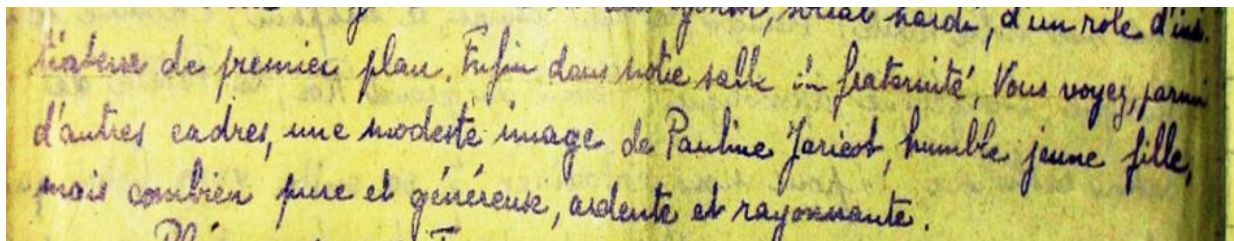 social hardi, d'un rôle d'ini-
tiateur de premier plan. Enfin dans notre salle in fraternité, Vous voyez, parmi
d'autres cadres, une modeste image de Pauline Jaricot, humble jeune fille,
mais combien pure et généreuse, ardente et rayonnante.